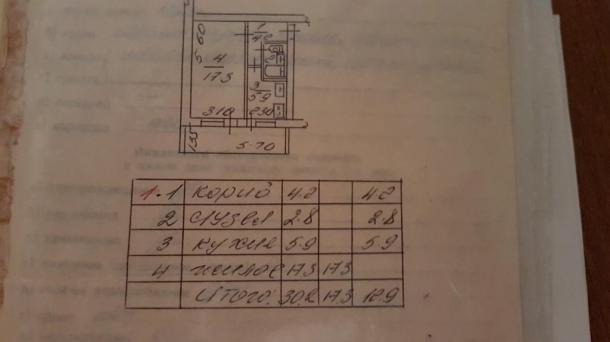 1
4.2
5 60
4
17.3
3
5.9
310
230
155
5.70
1.1 корид 4.2 4.2
2 с/узел 2.8 2.8
3 кухне 5.9 5.9
4 жилое 17.3 17.3
Итого: 30.2 17.3 12.9